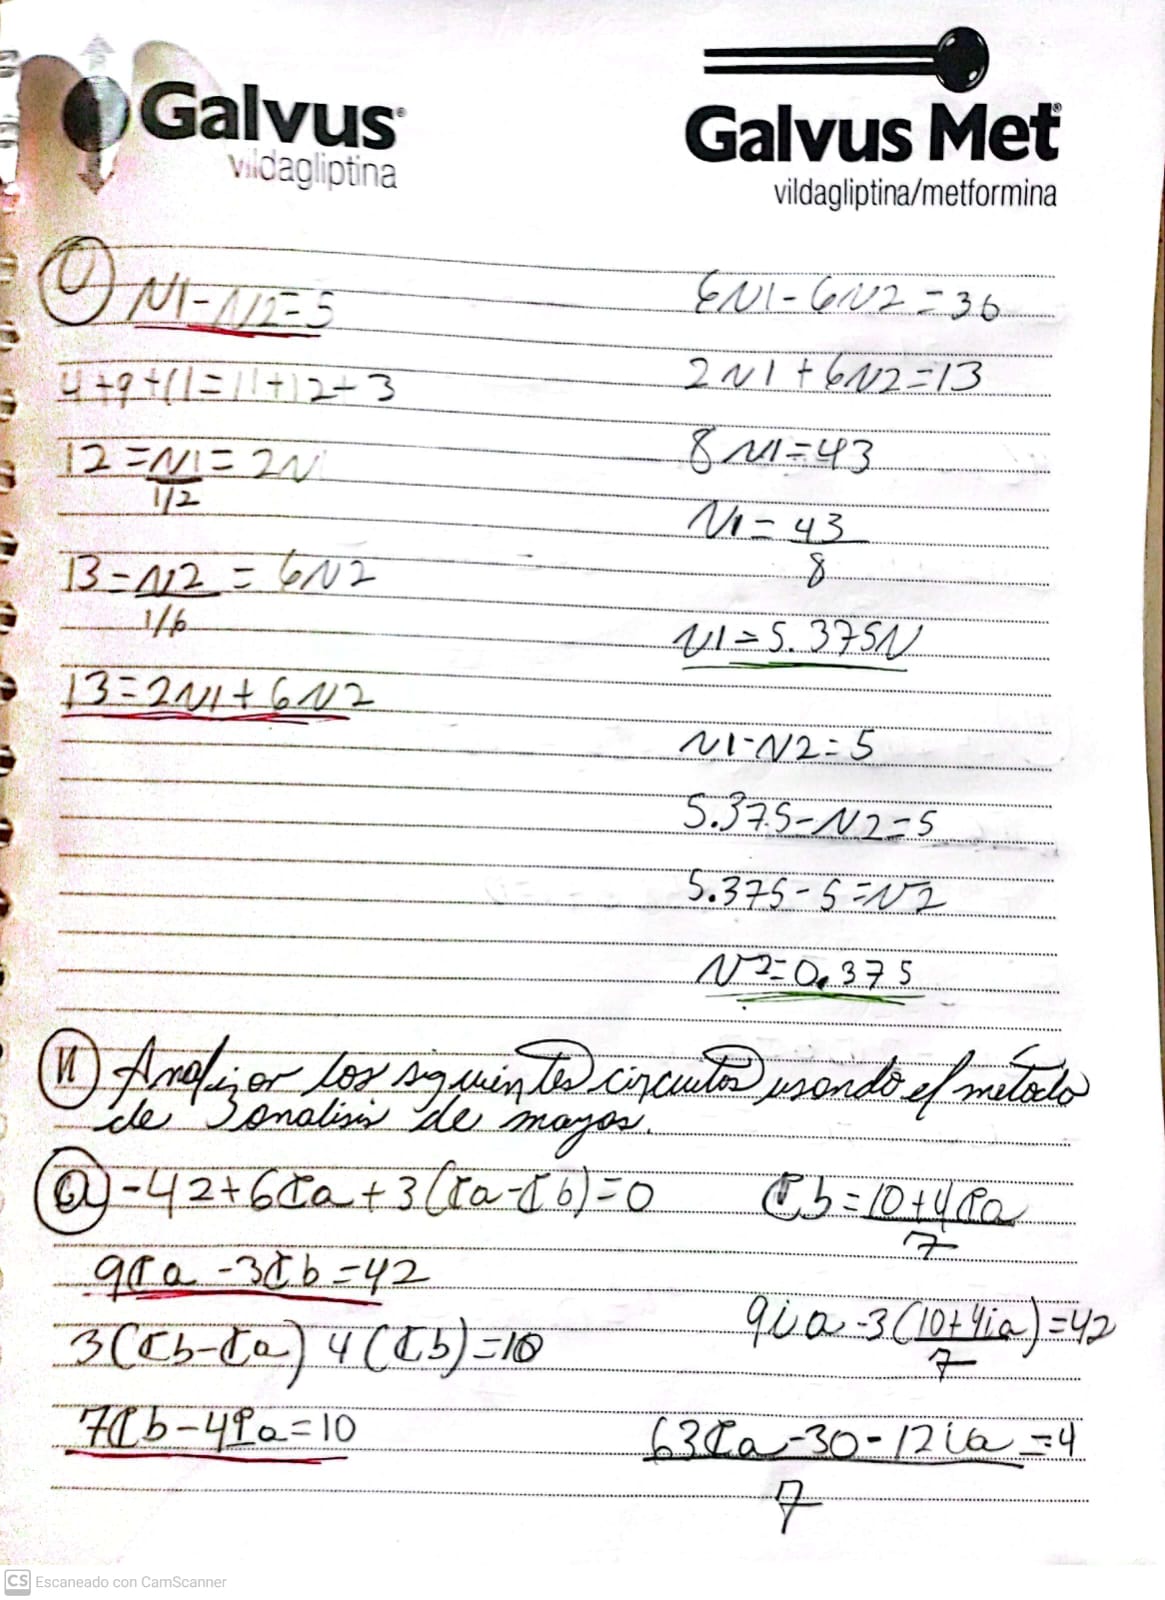 Galvus
vildagliptina
Galvus Met
vildagliptina/metformina
N1-N2=5
4+9+I1=I1+I2+3
I2=N1=2N
1/2
I3=N2=6N2
1/6
13=2N1+6N2
6N1-6N2=36
2N1+6N2=13
8N1=43
N1=43
8
N1=5.375N
N1-N2=5
5.375-N2=5
5.375-5=N2
N2=0.375
Analizar los siguientes circuitos usando el método
de analisis de mayas.
a) -42+6Ia+3(Ia-Ib)=0
9Ia-3Ib=42
3(Ib-Ia) 4(Ib)=10
7Ib-4Ia=10
Ib=10+4Ia
7
9ia-3(10+4ia)=42
7
63Ia-30-12ia=4
7
CS Escaneado con CamScanner